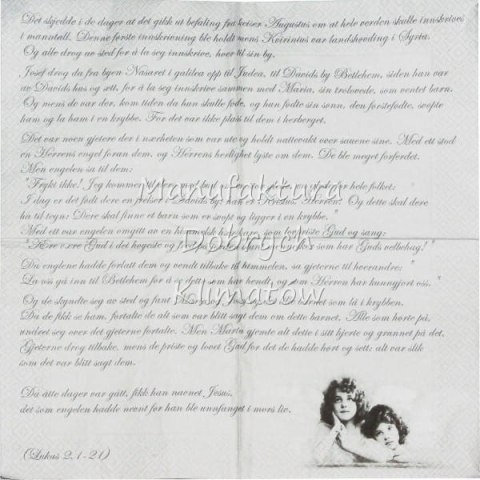 Det skjedde i de dager at det gikk ut befaling fra keiser Augustus om at hele verden skulle innskrives
i manntall. Denne første innskrivning ble holdt mens Kvirinius var landshøvding i Syria.
Og alle drog av sted for å la seg innskrive, hver til sin by.
Josef drog da fra byen Nasaret i galilea opp til Judea, til Davids by Betlehem, siden han var
av Davids hus og ætt, for å la seg innskrive sammen med Maria, sin trolovede, som ventet barn.
Og mens de var der, kom tiden da hun skulle føde, og hun fødte sin sønn, den førstefødte, svøpte
ham og la ham i en krybbe. For det var ikke plass til dem i herberget.
Det var noen gjetere der i nærheten som var ute og holdt nattevakt over sauene sine. Med ett stod
en Herrens engel foran dem, og Herrens herlighet lyste om dem. De ble meget forferdet.
Men engelen sa til dem:
"Frykt ikke! Jeg kommer for hele folket:
I dag er det født dere en frelser i Davids by: han er Herren! Og dette skal dere
ha til tegn: Dere skal finne et barn som er svøpt og ligger i en krybbe."
Med ett var engelen omgitt av en himmelsk hærskare, som lovpriste Gud og sang:
"Ære være Gud i det høyeste og som har Guds velbehag!"
Da englene hadde forlatt dem og vendt tilbake til himmelen, sa gjeterne til hverandre:
La oss gå inn til Betlehem for å se dette som har hendt og som Herren har kunngjort oss.
Og de skyndte seg av sted og fant som lå i krybben.
Da de fikk se ham, fortalte de alt som var blitt sagt dem om dette barnet. Alle som hørte på,
undret seg over det gjeterne fortalte. Men Maria gjemte alt dette i sitt hjerte og grunnet på det.
Gjeterne drog tilbake, mens de priste og lovet Gud for det de hadde hørt og sett; alt var slik
som det var blitt sagt dem.
Da åtte dager var gått, fikk han navnet Jesus,
det som engelen hadde nevnt før han ble unnfanget i mors liv.
(Lukas 2,1-21)
Manufaktura
Dobrych
Klimatów